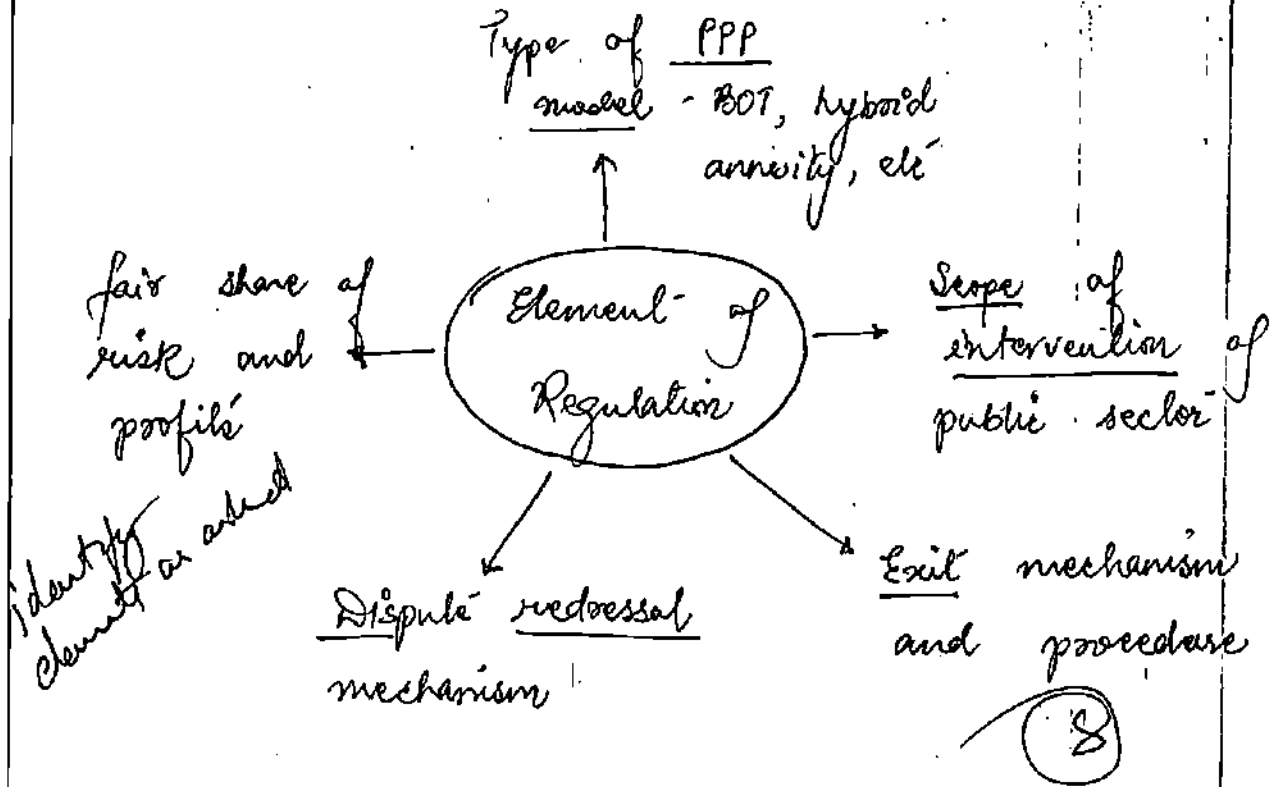 Type of PPP
model - BOT, hybrid
annuity, etc
fair share of
risk and
profits
Element of
Regulation
Scope of
intervention of
public sector
identify
as asked
Dispute redressal
mechanism
Exit mechanism
and procedure
8